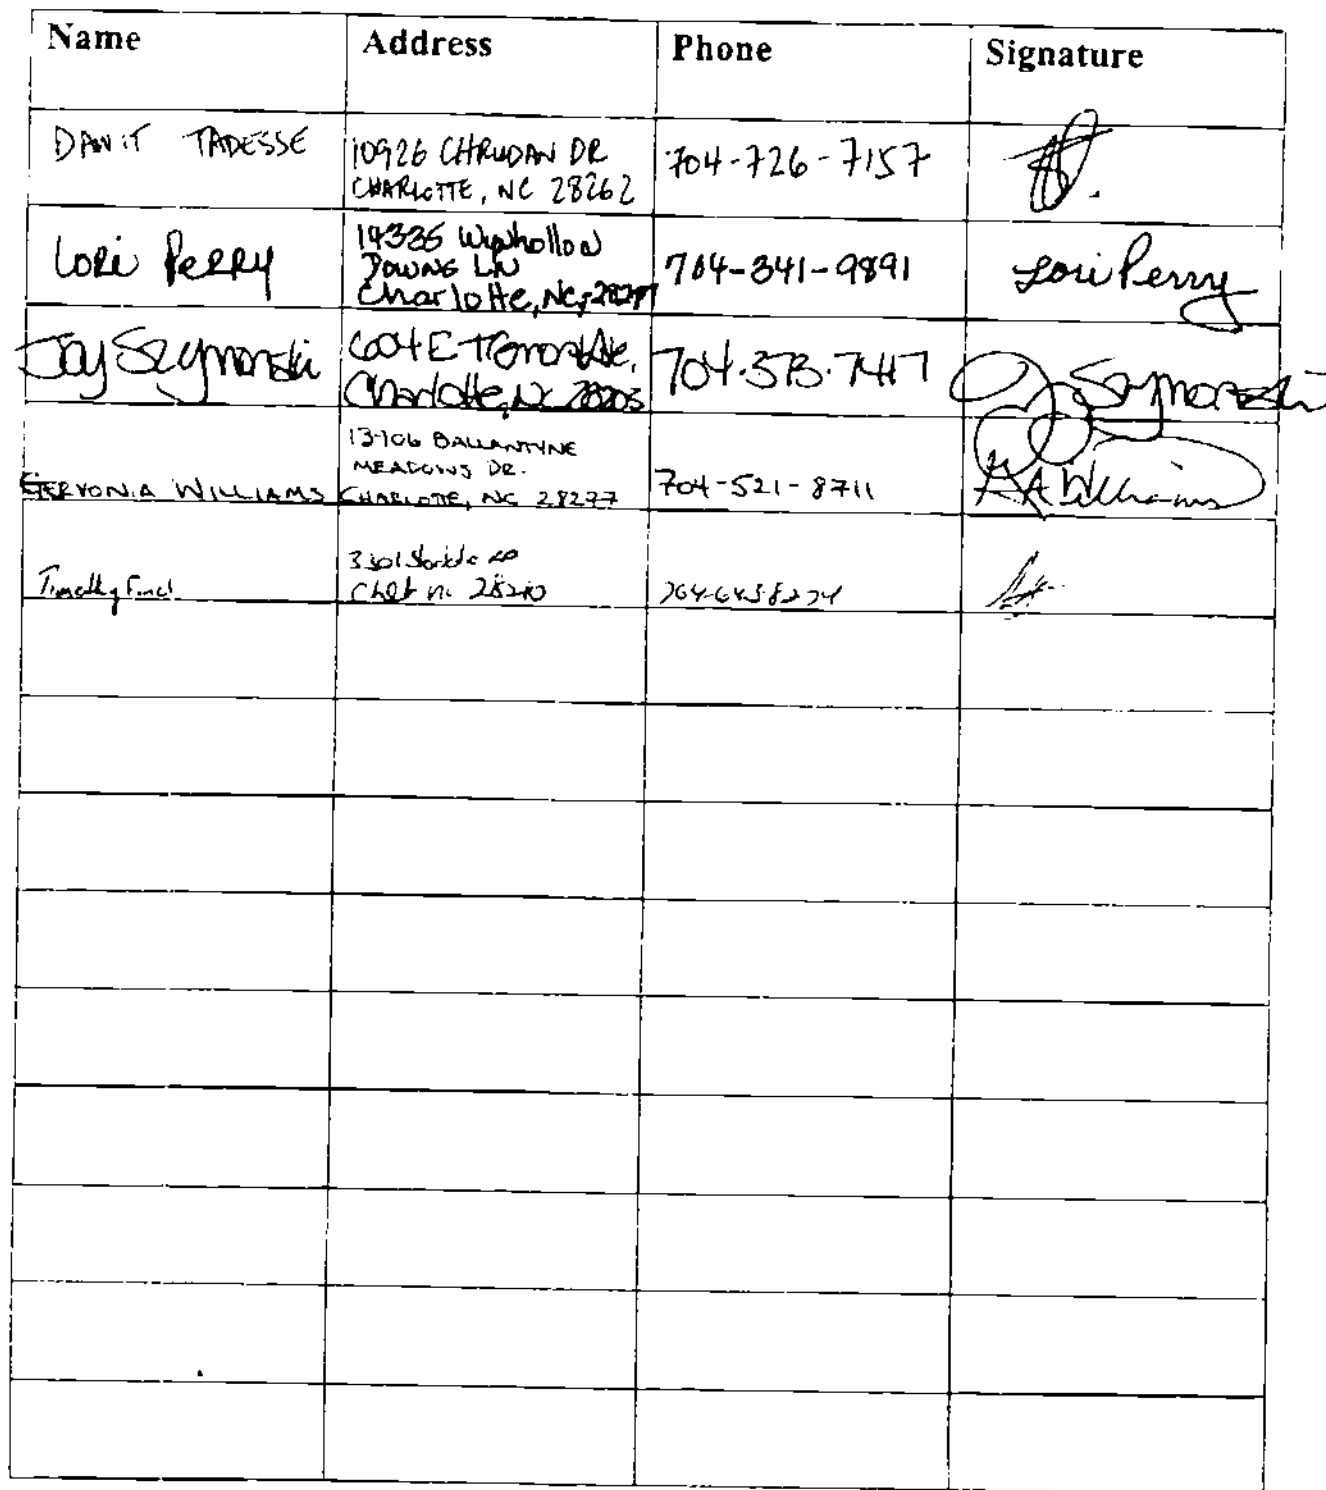 Name Address Phone Signature
DAWIT TADESSE
10926 CHRUDAN DR
CHARLOTTE, NC 28262
704-726-7157
Lori Perry
14335 Wynhollow
Downs LN
Charlotte, NC, 28277
704-341-9891
Lori Perry
Jay Szymanski
604 E Tremont Ave.
Charlotte, NC 28203
704.373.7417
J Szymanski
GERVONIA WILLIAMS
13706 BALLANTYNE
MEADOWS DR.
CHARLOTTE, NC 28277
704-521-8711
GA Williams
Timothy
3301
28210